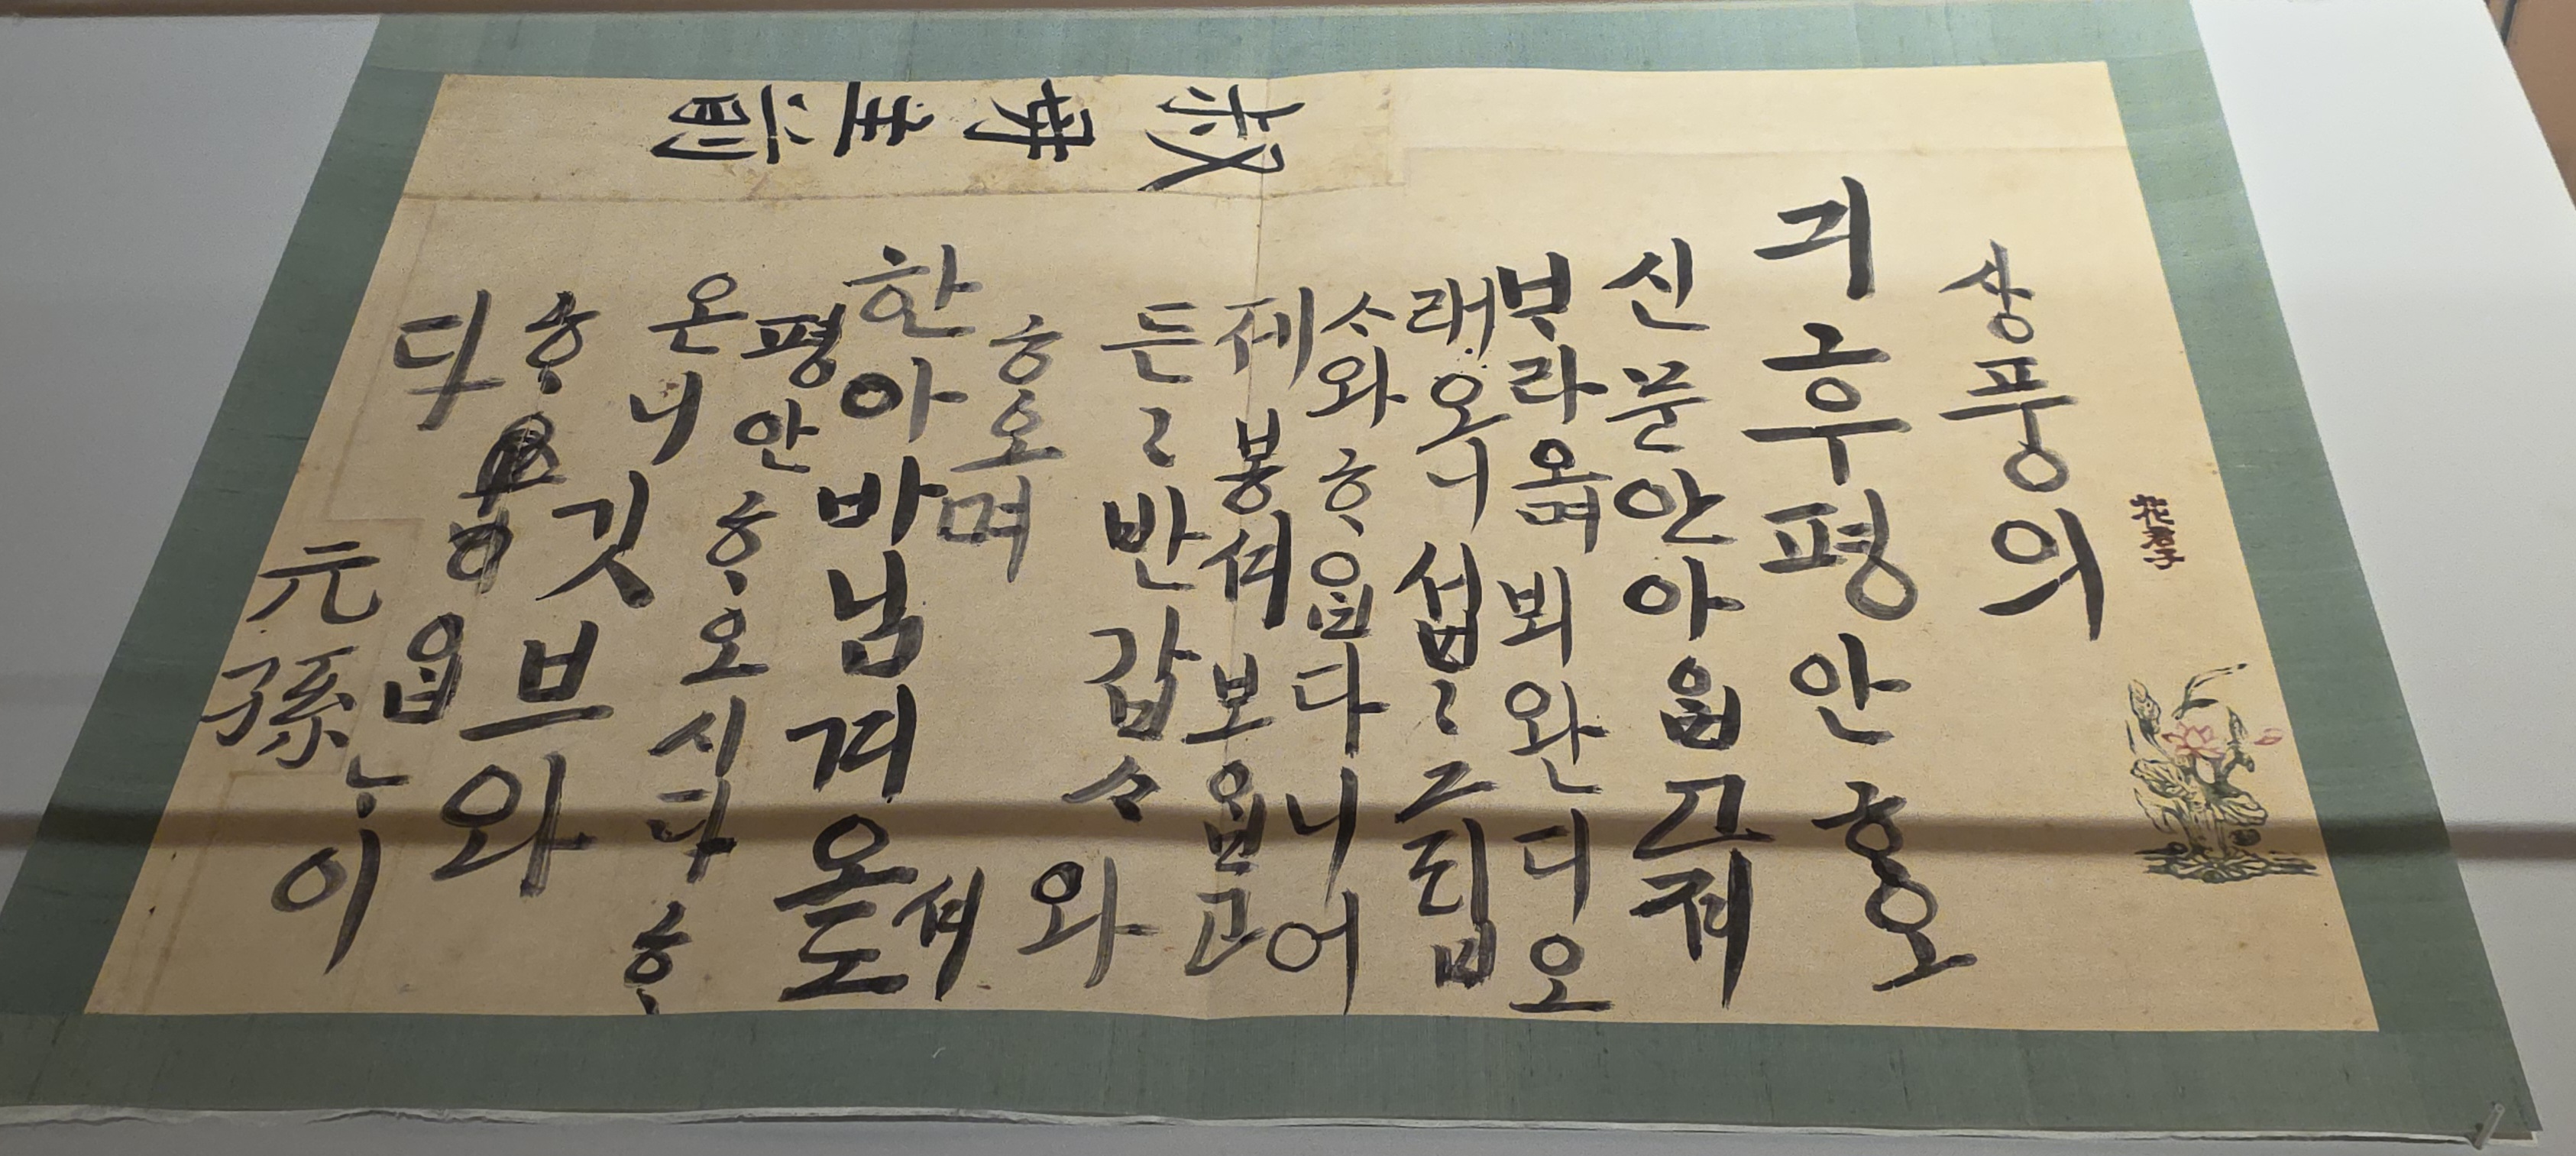 花君子
상풍의
긔후평안ᄒᆞ오
신문안아ᄋᆞᆸ고져
ᄇᆞ라오며뵈완디오
래오니섭〻그립
ᄉᆞ와ᄒᆞᄋᆞᆸ다니어
제봉셔보ᄋᆞᆸ고
든〻반갑ᄉᆞ와
ᄒᆞ오며
한아바님겨오셔도
평안ᄒᆞ오시다ᄒᆞ
온니깃브와
ᄒᆞᄋᆞᆸᄂᆞ이
다
元孫
叔母主前